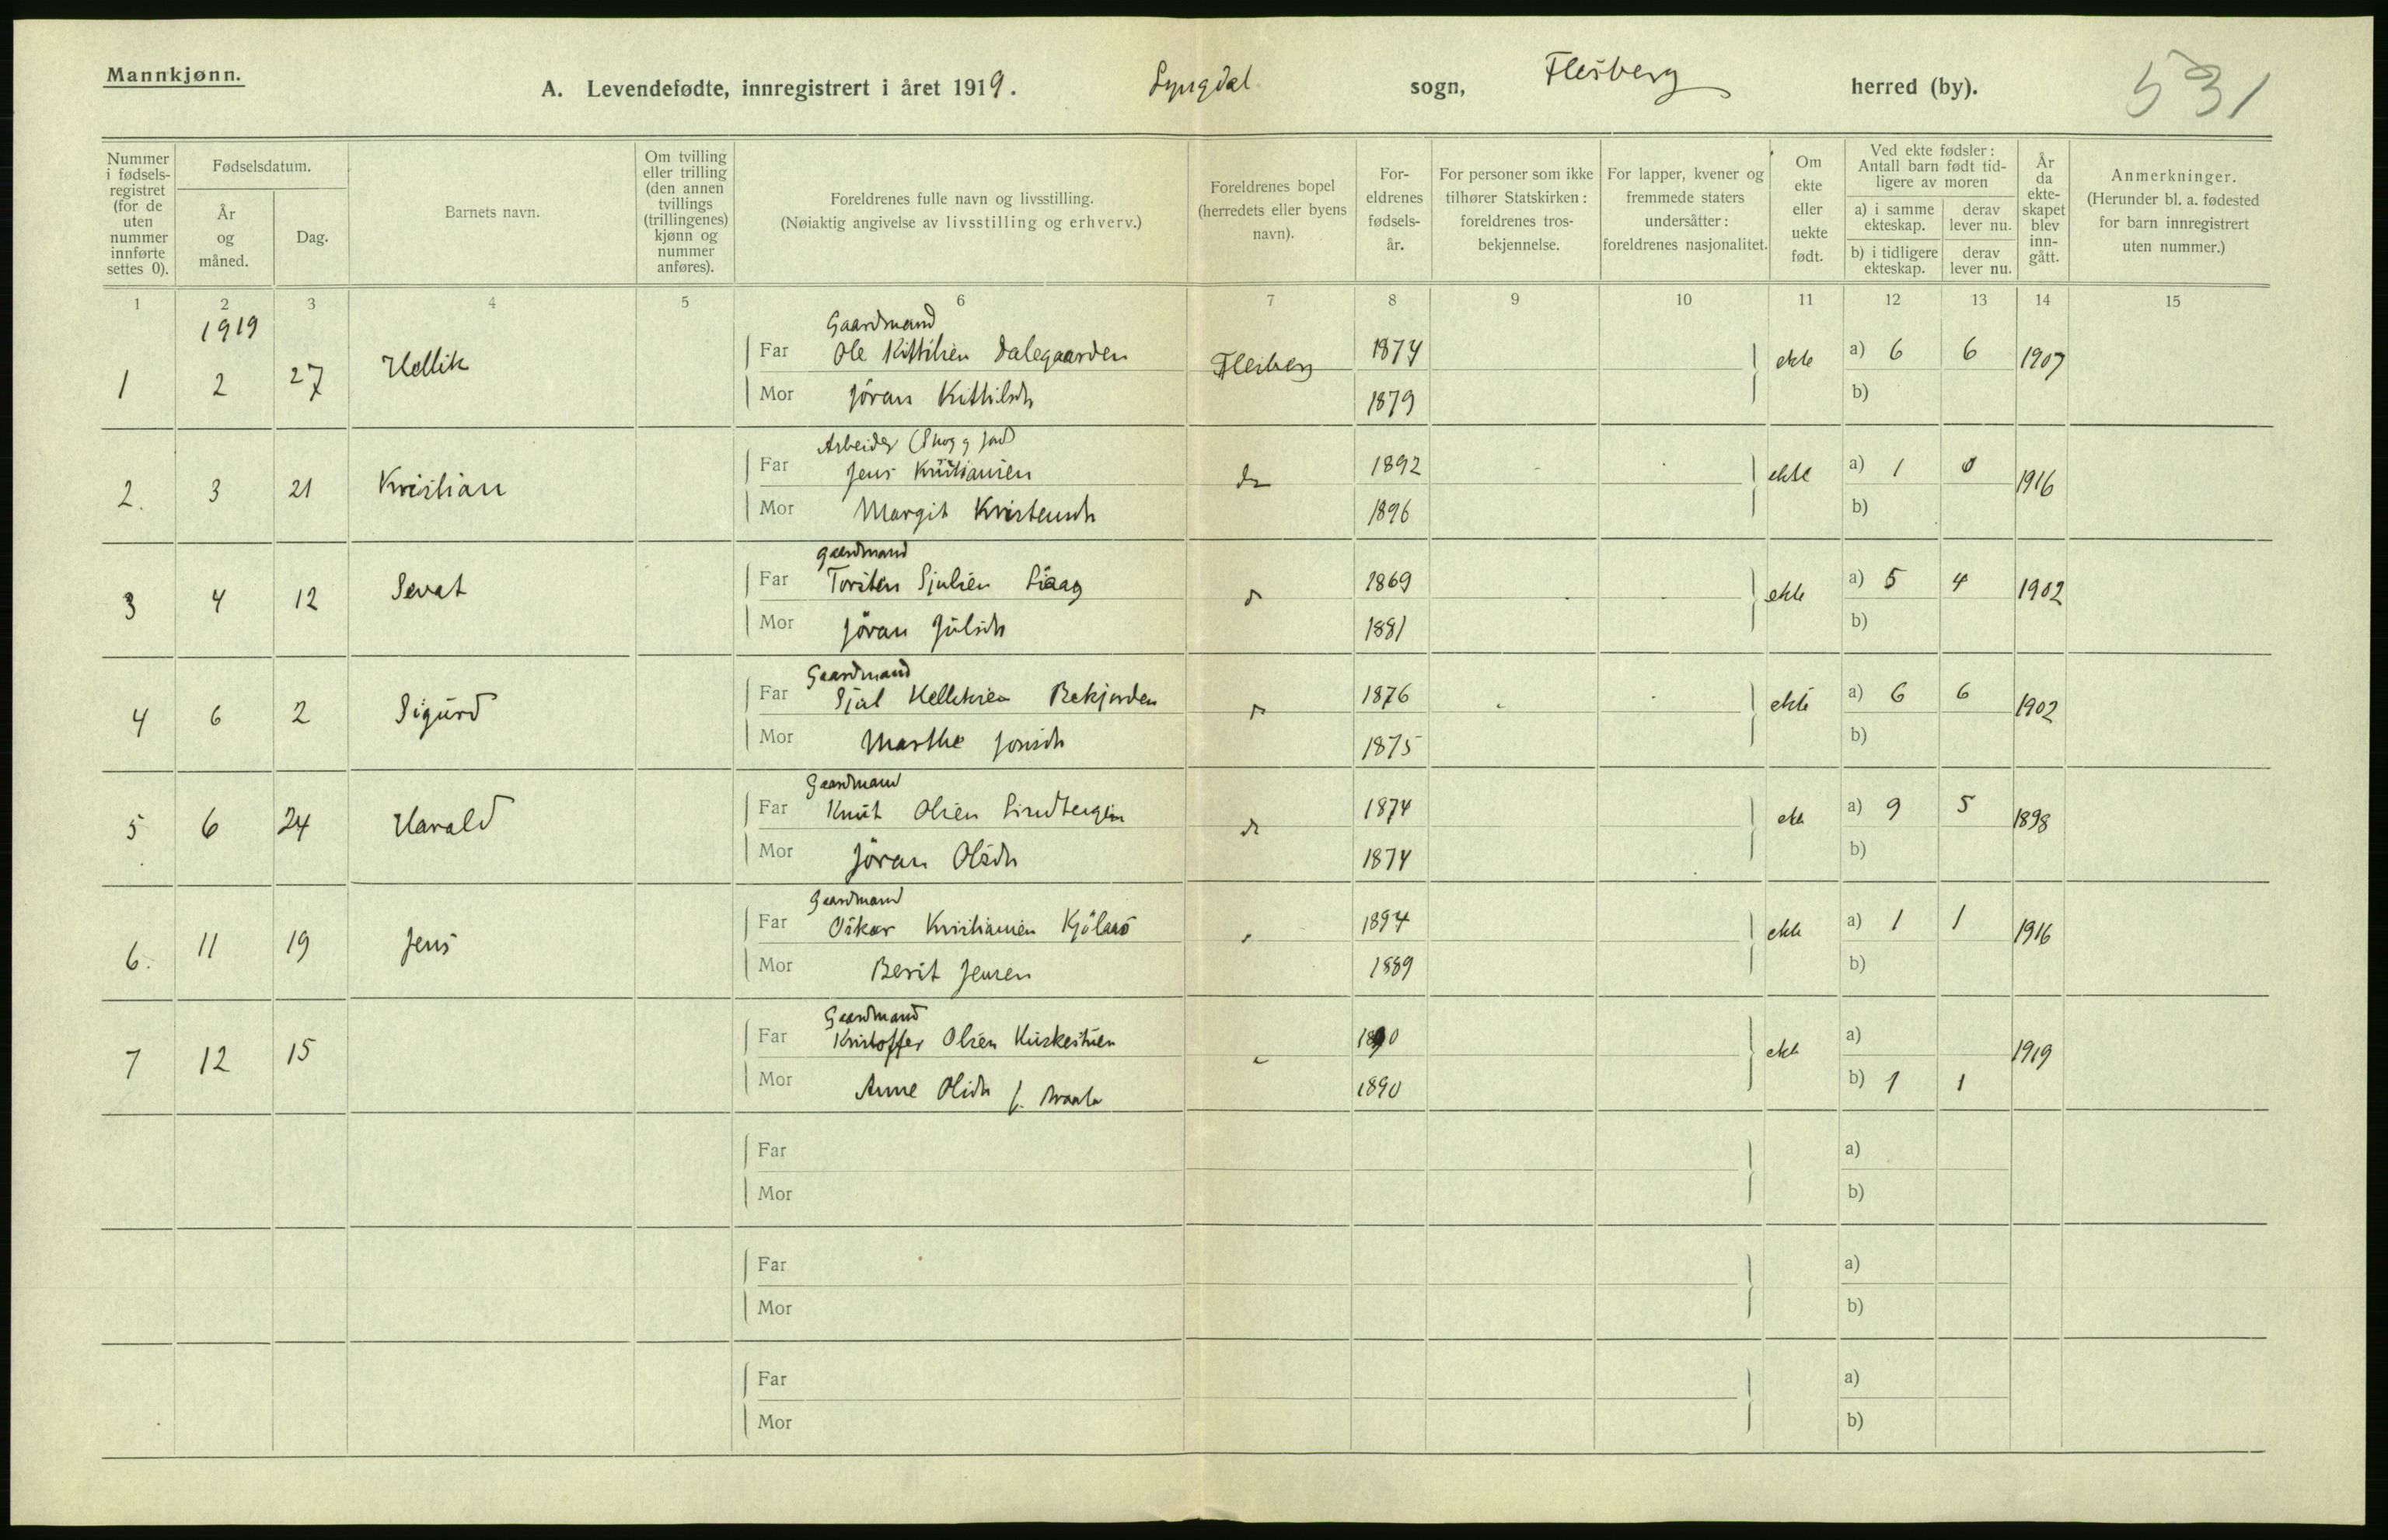 Mannkjønn.
A. Levendefødte, innregistrert i året 1919. Lyngdal sogn, Flesberg herred (by). 531
Nummer i fødsels-registret (for de uten nummer innførte settes 0).
Fødselsdatum.
År og måned.
Dag.
Barnets navn.
Om tvilling eller trilling (den annen tvillings (trillingenes) kjønn og nummer anføres).
Foreldrenes fulle navn og livsstilling.
(Nøiaktig angivelse av livsstilling og erhverv.)
Foreldrenes bopel (herredets eller byens navn).
For-eldrenes fødsels-år.
For personer som ikke tilhører Statskirken: foreldrenes tros-bekjennelse.
For lapper, kvener og fremmede staters undersåtter: foreldrenes nasjonalitet.
Om ekte eller uekte født.
Ved ekte fødsler: Antall barn født tid-ligere av moren
a) i samme ekteskap.
derav lever nu.
b) i tidligere ekteskap.
derav lever nu.
År da ekte-skapet blev inn-gått.
Anmerkninger.
(Herunder bl. a. fødested for barn innregistrert uten nummer.)
1 2 3 4 5 6 7 8 9 10 11 12 13 14 15
1919
Gaardmand
1 2 27 Hellik Far Ole Kittilsen Dalegaarden Flesberg 1874 ekte a) 6 6 1907
Mor Jöran Kittilsdr 1879 b)
Arbeider (Skog g jord)
2. 3 21 Kristian Far Jens Kristiansen do 1892 ekte a) 1 0 1916
Mor Margit Kristensdr 1896 b)
Gaardmand
3 4 12 Sevat Far Torsten Sjulsen 1869 ekte a) 5 4 1902
Mor Jöran Julsdr 1881 b)
Gaardmand
4 6 2 Sigurd Far Sjul Helliksen Bekjorden 1876 ekte a) 6 6 1902
Mor Marthe Jonsdr 1875 b)
Gaardmand
5 6 24 Harald Far Knut Olsen 1874 ekte a) 9 5 1898
Mor Jöran Olsdr 1874 b)
Gaardmand
6. 11 19 Jens Far Oskar Kristiansen Kjölaas 1894 ekte a) 1 1 1916
Mor Berit Jensen 1889 b)
Gaardmand
7 12 15 Far Kristoffer Olsen 1890 ekte a) 1919
Mor Anne Olsdr f. Braata 1890 b) 1 1
Far a)
Mor b)
Far a)
Mor b)
Far a)
Mor b)